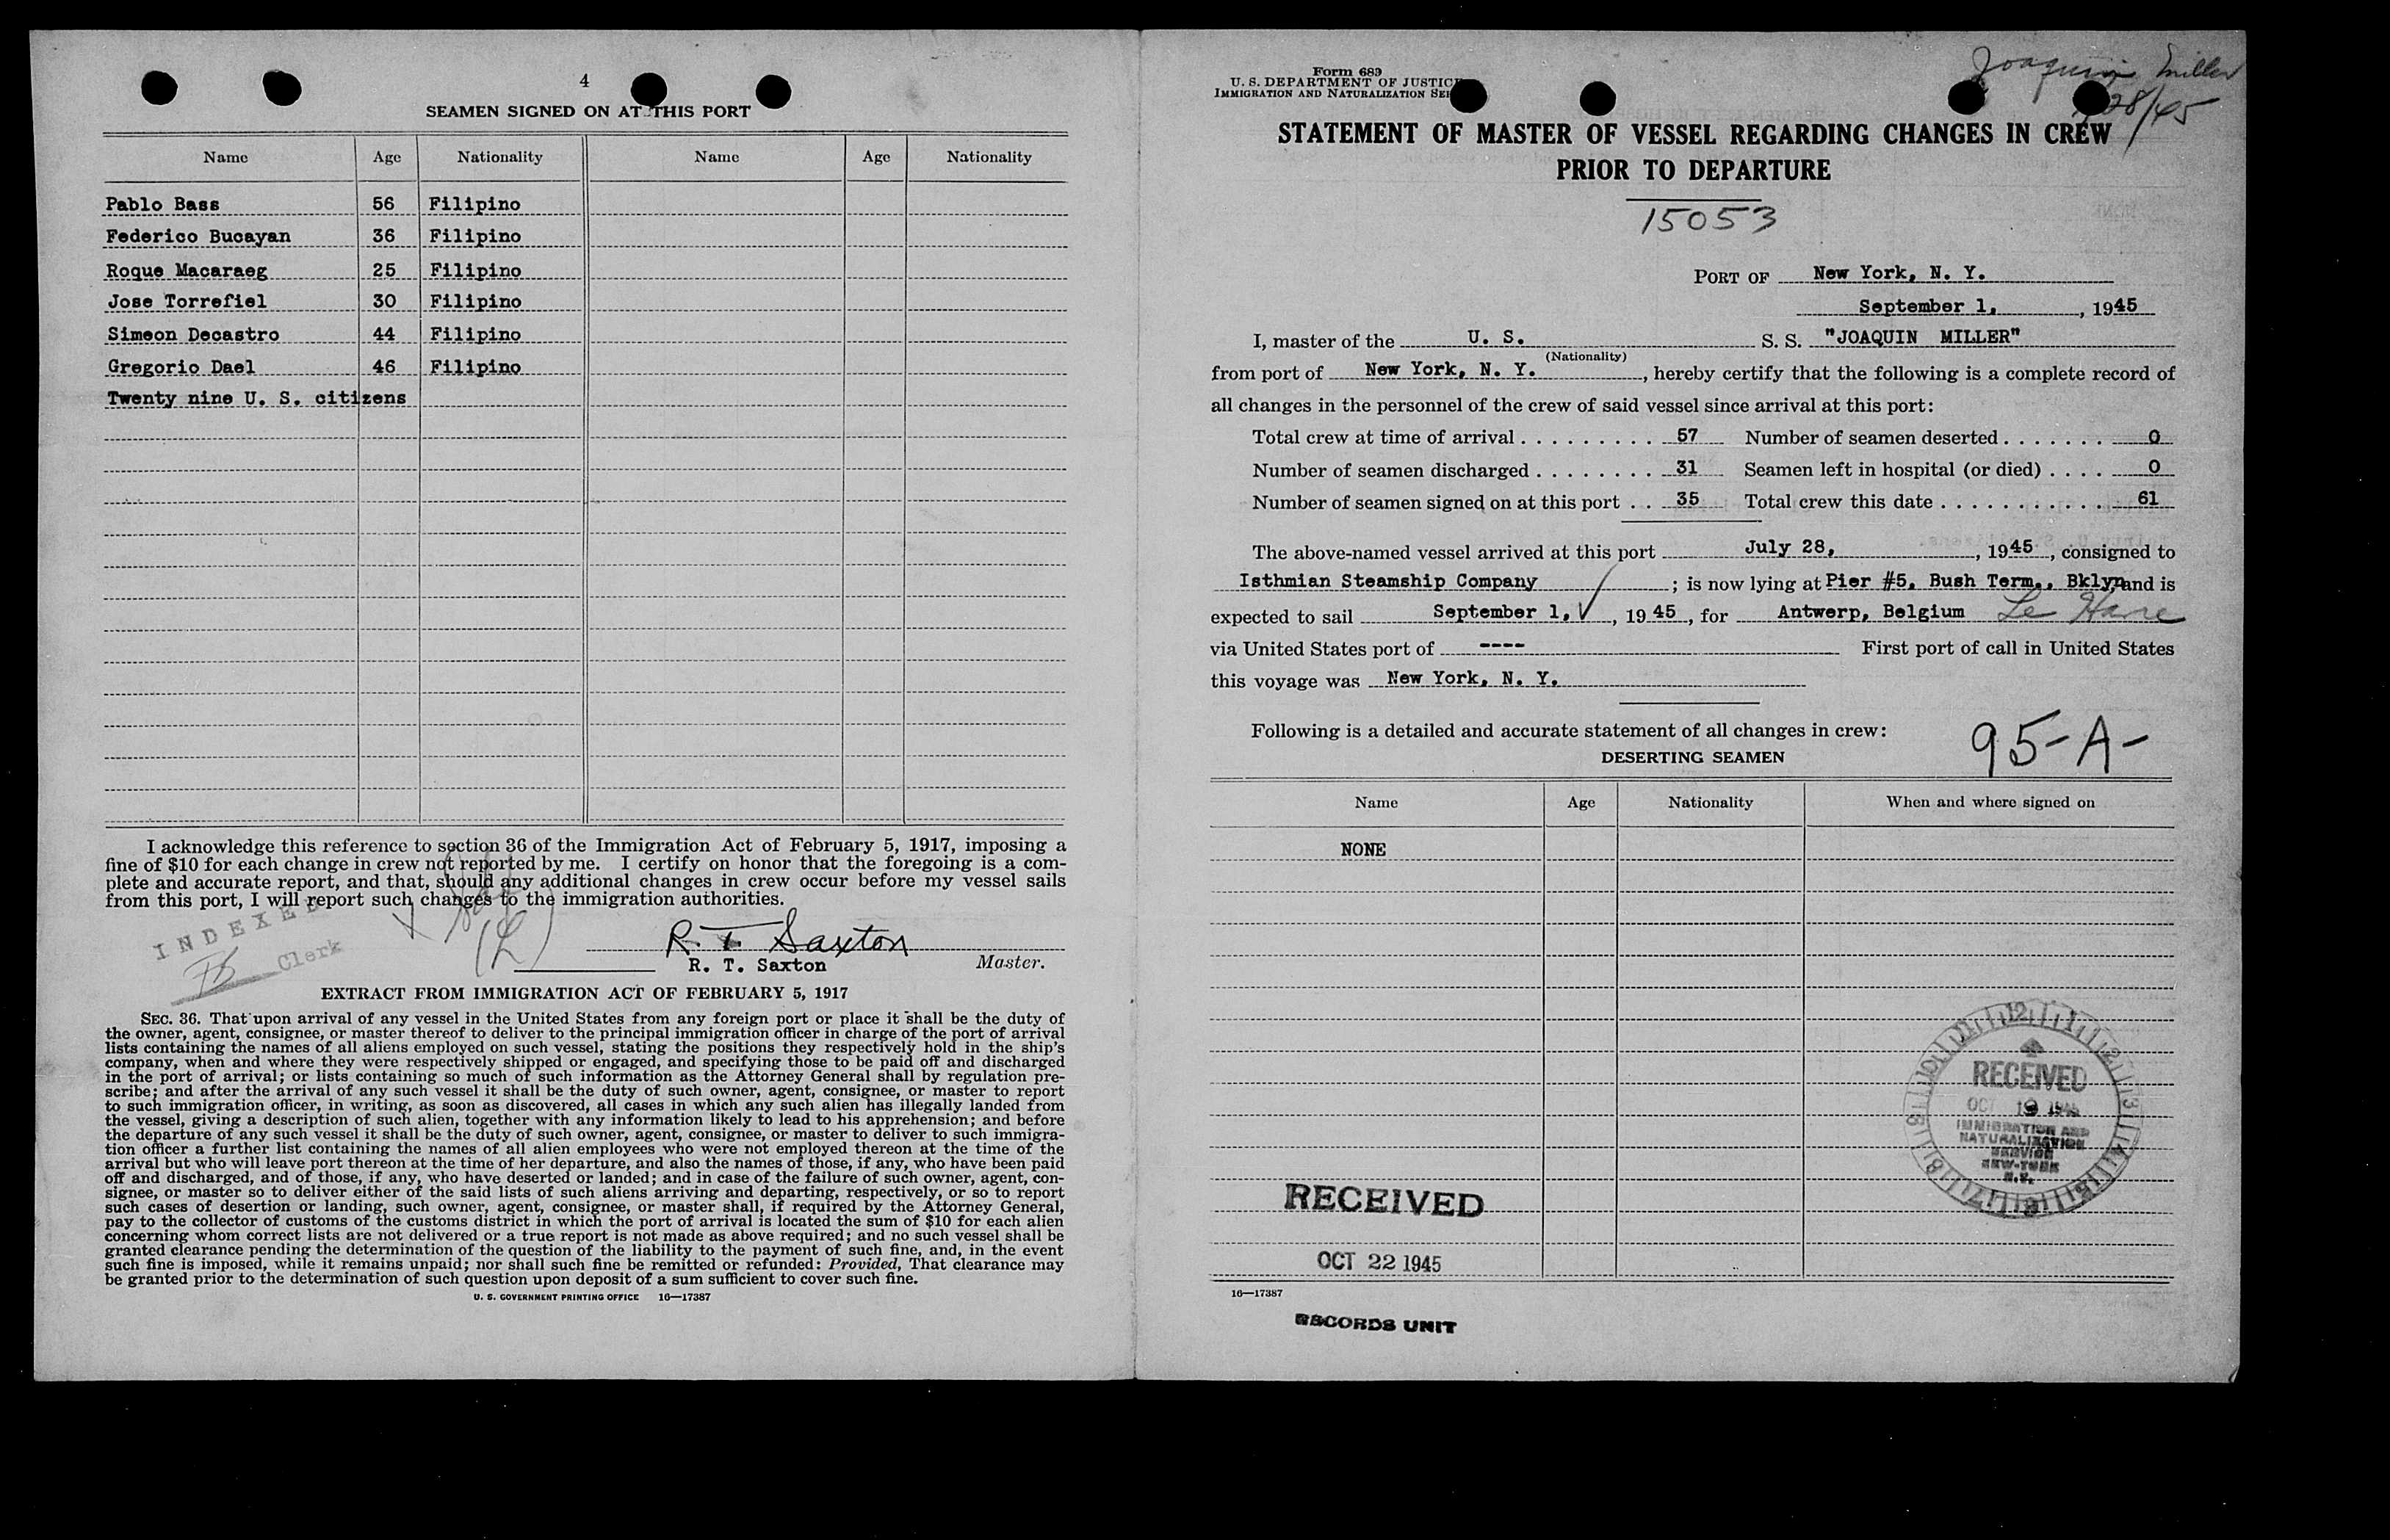 4
SEAMEN SIGNED ON AT THIS PORT
Name Age Nationality Name Age Nationality
Pablo Bass 56 Filipino
Federico Bucayan 36 Filipino
Roque Macaraeg 25 Filipino
Jose Torrefiel 30 Filipino
Simeon Decastro 44 Filipino
Gregorio Dael 46 Filipino
Twenty nine U. S. citizens
I acknowledge this reference to section 36 of the Immigration Act of February 5, 1917, imposing a
fine of $10 for each change in crew not reported by me. I certify on honor that the foregoing is a com-
plete and accurate report, and that, should any additional changes in crew occur before my vessel sails
from this port, I will report such changes to the immigration authorities.
INDEXED
Clerk
R. T. Saxton
R. T. Saxton Master.
EXTRACT FROM IMMIGRATION ACT OF FEBRUARY 5, 1917
SEC. 36. That upon arrival of any vessel in the United States from any foreign port or place it shall be the duty of
the owner, agent, consignee, or master thereof to deliver to the principal immigration officer in charge of the port of arrival
lists containing the names of all aliens employed on such vessel, stating the positions they respectively hold in the ship's
company, when and where they were respectively shipped or engaged, and specifying those to be paid off and discharged
in the port of arrival; or lists containing so much of such information as the Attorney General shall by regulation pre-
scribe; and after the arrival of any such vessel it shall be the duty of such owner, agent, consignee, or master to report
to such immigration officer, in writing, as soon as discovered, all cases in which any such alien has illegally landed from
the vessel, giving a description of such alien, together with any information likely to lead to his apprehension; and before
the departure of any such vessel it shall be the duty of such owner, agent, consignee, or master to deliver to such immigra-
tion officer a further list containing the names of all alien employees who were not employed thereon at the time of the
arrival but who will leave port thereon at the time of her departure, and also the names of those, if any, who have been paid
off and discharged, and of those, if any, who have deserted or landed; and in case of the failure of such owner, agent, con-
signee, or master so to deliver either of the said lists of such aliens arriving and departing, respectively, or so to report
such cases of desertion or landing, such owner, agent, consignee, or master shall, if required by the Attorney General,
pay to the collector of customs of the customs district in which the port of arrival is located the sum of $10 for each alien
concerning whom correct lists are not delivered or a true report is not made as above required; and no such vessel shall be
granted clearance pending the determination of the question of the liability to the payment of such fine, and, in the event
such fine is imposed, while it remains unpaid; nor shall such fine be remitted or refunded: Provided, That clearance may
be granted prior to the determination of such question upon deposit of a sum sufficient to cover such fine.
U. S. GOVERNMENT PRINTING OFFICE 16—17387
Form 689
U. S. DEPARTMENT OF JUSTICE
IMMIGRATION AND NATURALIZATION SER
Joaquin Miller
28/45
STATEMENT OF MASTER OF VESSEL REGARDING CHANGES IN CREW
PRIOR TO DEPARTURE
15053
PORT OF New York, N. Y.
September 1, , 1945
I, master of the U. S. S. S. "JOAQUIN MILLER"
(Nationality)
from port of New York, N. Y. , hereby certify that the following is a complete record of
all changes in the personnel of the crew of said vessel since arrival at this port:
Total crew at time of arrival . . . . . . . . . 57 Number of seamen deserted . . . . . . . 0
Number of seamen discharged . . . . . . . . 31 Seamen left in hospital (or died) . . . . 0
Number of seamen signed on at this port . . 35 Total crew this date . . . . . . . . . . . 61
The above-named vessel arrived at this port July 28, , 1945, consigned to
Isthmian Steamship Company ; is now lying at Pier #5, Bush Term., Bklyn and is
expected to sail September 1, ✓ , 1945, for Antwerp, Belgium Le Havre
via United States port of ---- First port of call in United States
this voyage was New York, N. Y.
Following is a detailed and accurate statement of all changes in crew:
95-A-
DESERTING SEAMEN
Name Age Nationality When and where signed on
NONE
12 1 2 3 4 5 6 7 8 9 10 11
RECEIVED
OCT 19 1945
IMMIGRATION AND
NATURALIZATION
SERVICE
NEW-YORK
N.Y.
RECEIVED
OCT 22 1945
16—17387
RECORDS UNIT